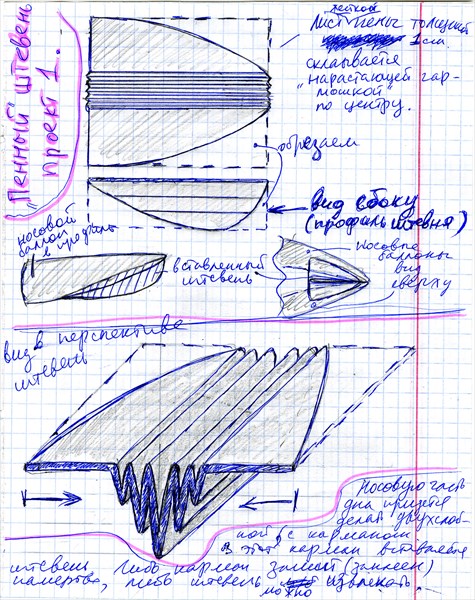 "Пенный штевень"
проект 1.
жёсткой
Лист пены толщиной
1 см.
складывается
"нарастающей гар-
мошкой"
по центру.
обрезаем
вид сбоку
(профиль штевня)
носовой
баллон
в профиль
вставленный
штевень
носовые
баллоны
вид
сверху
вид в перспективе
штевень
Носовую часть
дна придется
делать двухслой-
ной, с карманом
В этот карман вставляется
штевень либо карман зашит (заклеен)
намертво, либо штевень можно извлекать